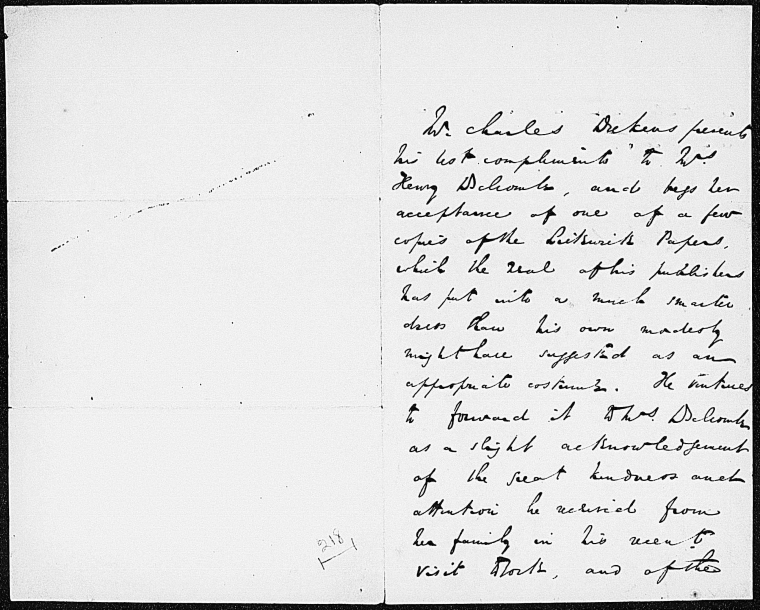 218
Mr. Charles Dickens presents
his best compliments to Mrs
Henry Belcombe, and begs her
acceptance of one of a few
copies of the Pickwick Papers,
which the zeal of his publishers
has put into a much smarter
dress than his own modesty
might have suggested as an
appropriate costume. He ventures
to forward it to Mrs. Belcombe
as a slight acknowledgement
of the great kindness and
attention he received from
her family in his recent
visit to York, and of the